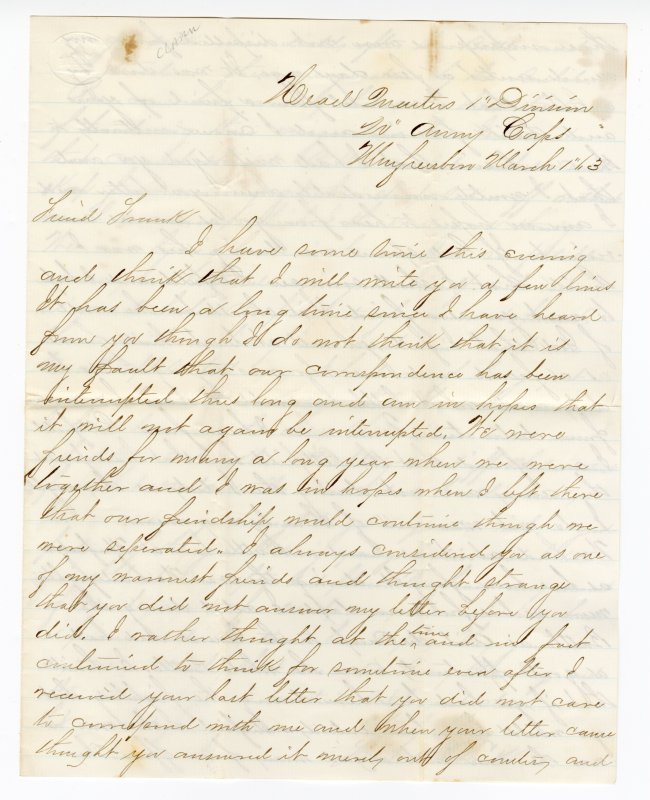 Clark
Head Quarters 1" Division
20" Army Corps
Murfreesboro March 1" 63
Friend Frank
I have some time this evening
and think that I will write you a few lines
It has been a long time since I have heard
from you though I do not think that it is
my fault that our correspondence has been
interrupted thus long and am in hopes that
it will not again be interrupted. We were
freinds for many a long year when we were
together and I was in hopes when I left there
that our freindship would continue though we
were seperated. I always considered you as one
of my warmest freinds and thought strange
that you did not answer my letter before you
did. I rather thought at the time and in fact
continued to think for sometime even after I
received your last letter that you did not care
to correspond with me and when your letter came
thought you answered it merely out of courtesy and